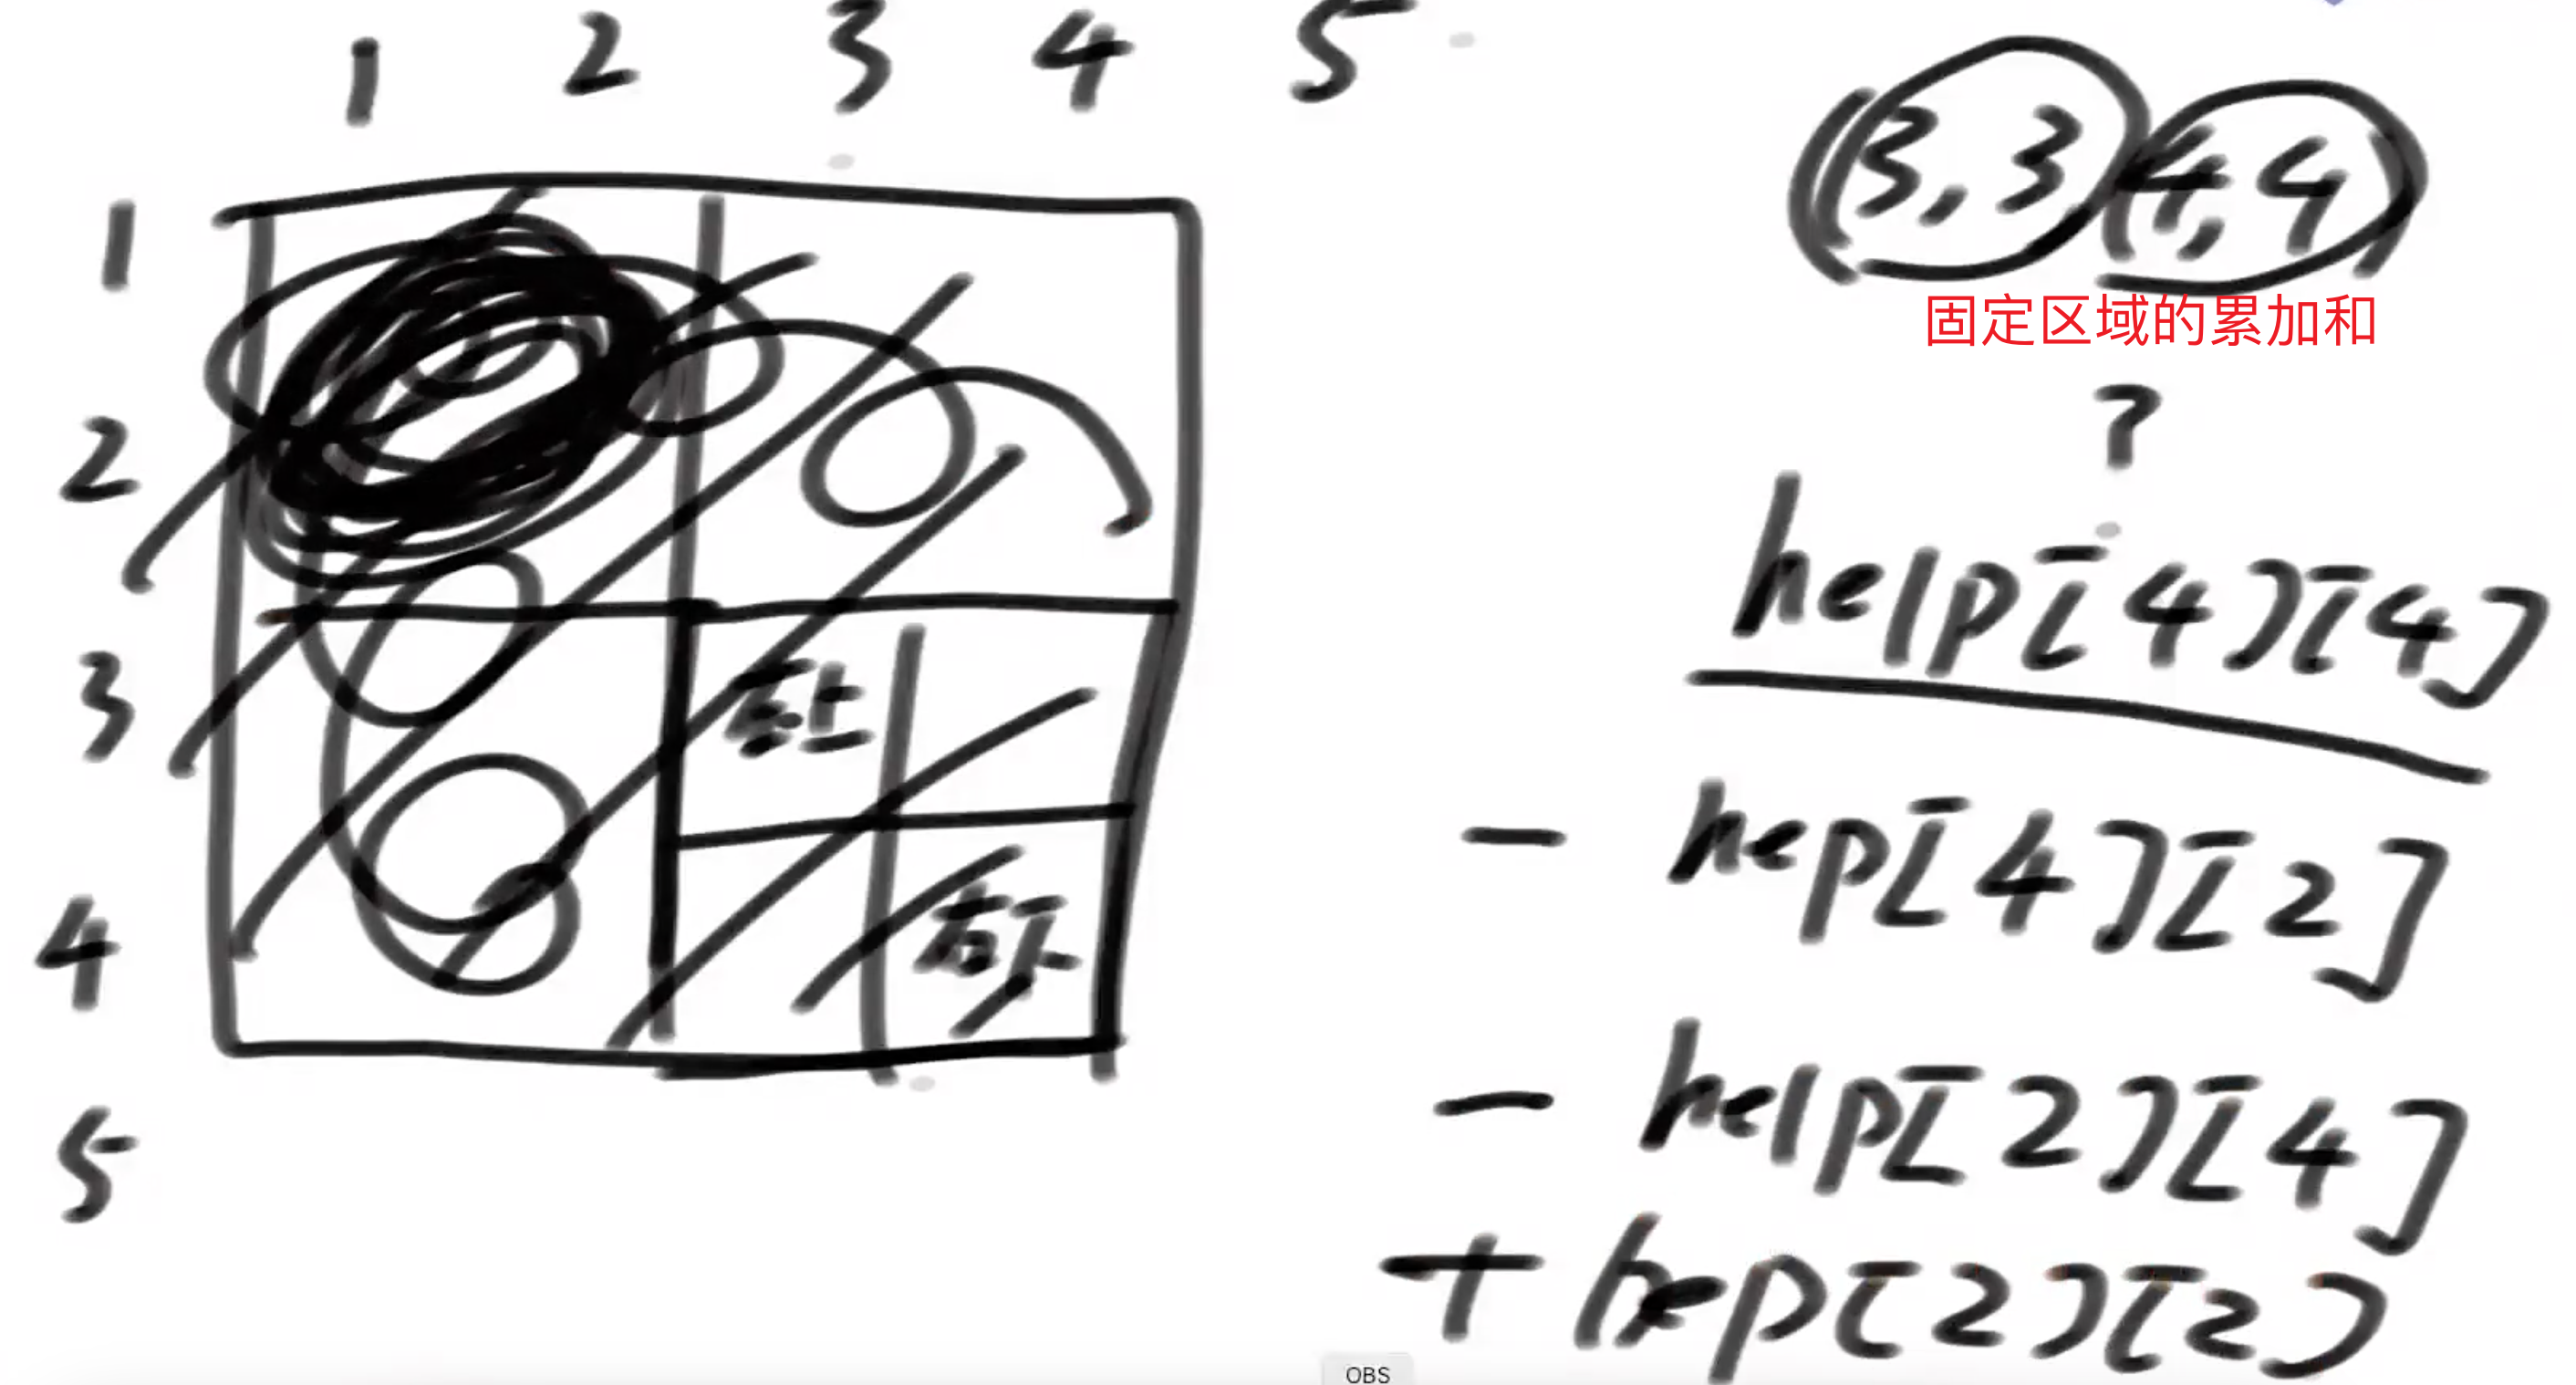 1 2 3 4 5
1
2
3
4
5
(3,3) (4,4)
固定区域的累加和
?
help[4][4]
- hep[4][2]
- help[2][4]
+ hep[2][2]
左上
右下
OBS